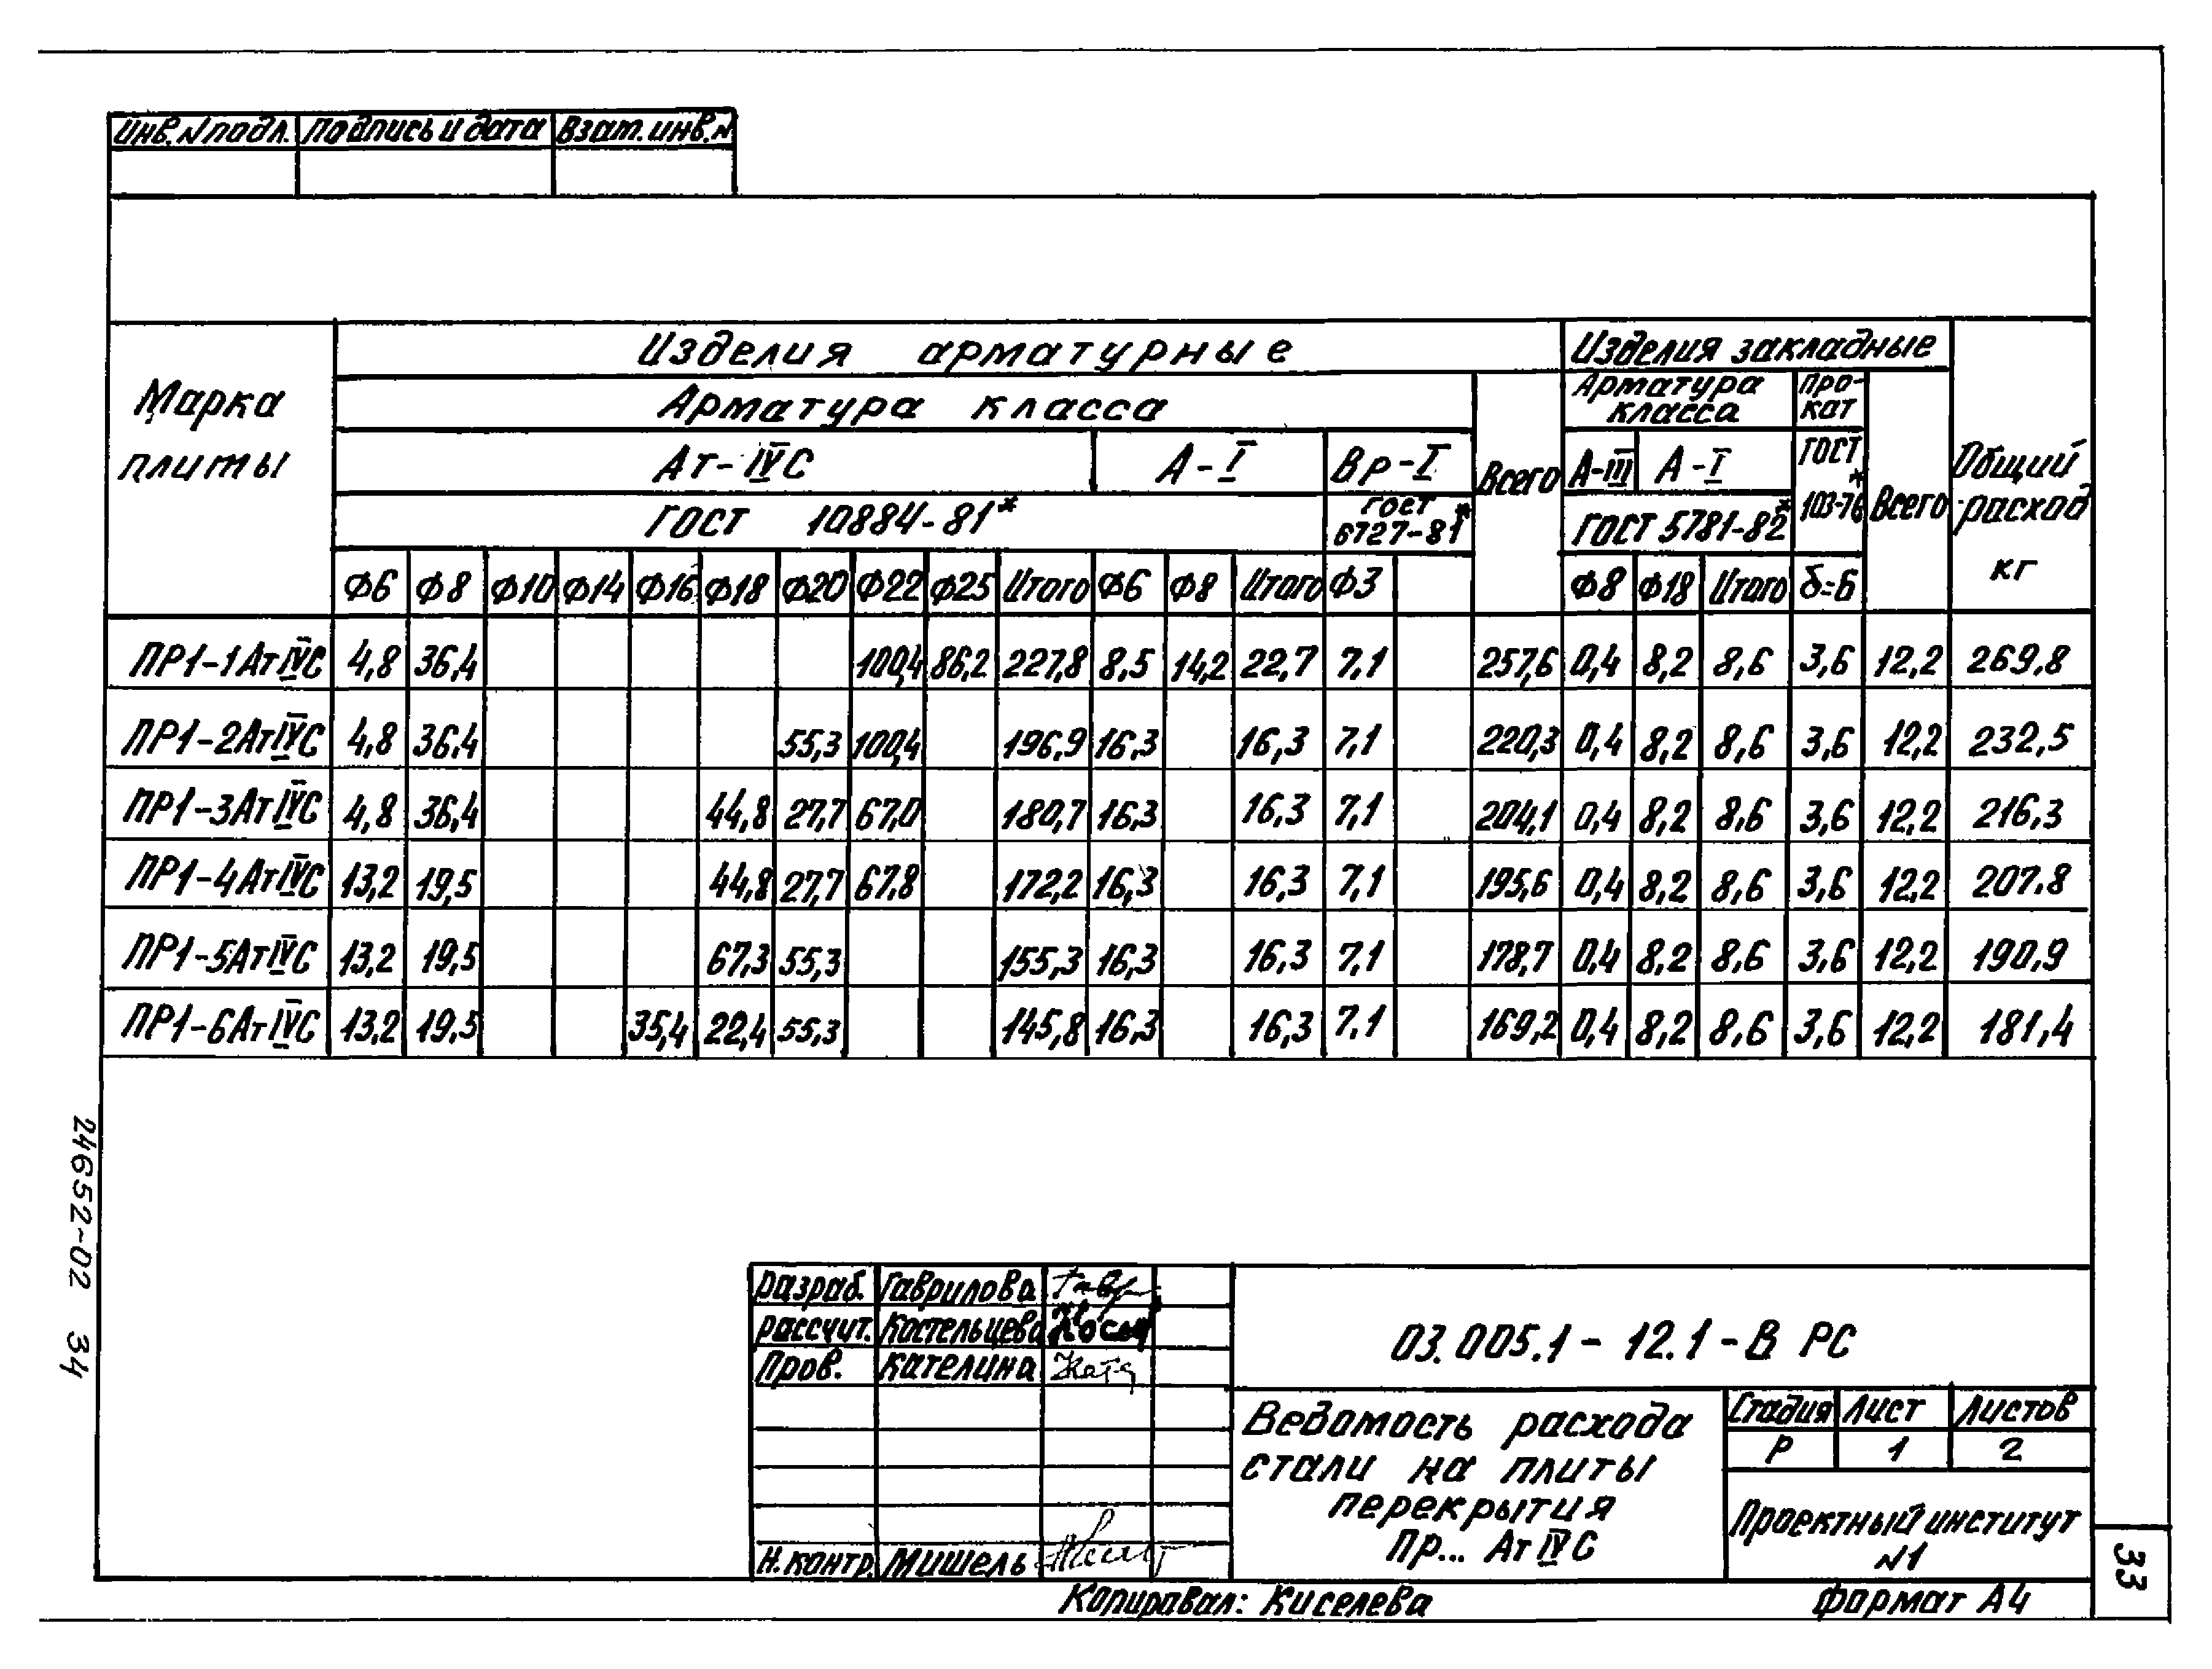 Инв. N подл. Подпись и дата Взат. инв. N
Марка плиты
Изделия арматурные
Изделия закладные
Общий расход кг
Арматура класса
Всего
Арматура класса
Прокат
Всего
Ат-IVС А-I Вр-I А-III А-I ГОСТ 103-76*
ГОСТ 10884-81* ГОСТ 6727-81* ГОСТ 5781-82*
Ф6 Ф8 Ф10 Ф14 Ф16 Ф18 Ф20 Ф22 Ф25 Итого Ф6 Ф8 Итого Ф3 Ф8 Ф18 Итого δ=6
ПР1-1АтIVС 4,8 36,4 100,4 86,2 227,8 8,5 14,2 22,7 7,1 257,6 0,4 8,2 8,6 3,6 12,2 269,8
ПР1-2АтIVС 4,8 36,4 55,3 100,4 196,9 16,3 16,3 7,1 220,3 0,4 8,2 8,6 3,6 12,2 232,5
ПР1-3АтIVС 4,8 36,4 44,8 27,7 67,0 180,7 16,3 16,3 7,1 204,1 0,4 8,2 8,6 3,6 12,2 216,3
ПР1-4АтIVС 13,2 19,5 44,8 27,7 67,8 172,2 16,3 16,3 7,1 195,6 0,4 8,2 8,6 3,6 12,2 207.8
ПР1-5АтIVС 13,2 19,5 67,3 55,3 155,3 16,3 16,3 7,1 178,7 0,4 8,2 8,6 3,6 12,2 190,9
ПР1-6АтIVС 13,2 19,5 35,4 22,4 55,3 145,8 16,3 16,3 7,1 169,2 0,4 8,2 8,6 3,6 12,2 181,4
24652-02 34
разраб. Гаврилова
рассчит. Костельцева
Пров. Кателина
Н. контр. Мишель
03.005.1-12.1-В РС
Ведомость расхода
стали на плиты
перекрытия
Пр... Ат IVС
Стадия Лист Листов
Р 1 2
Проектный институт
N1
33
Копировал: Киселева
формат А4